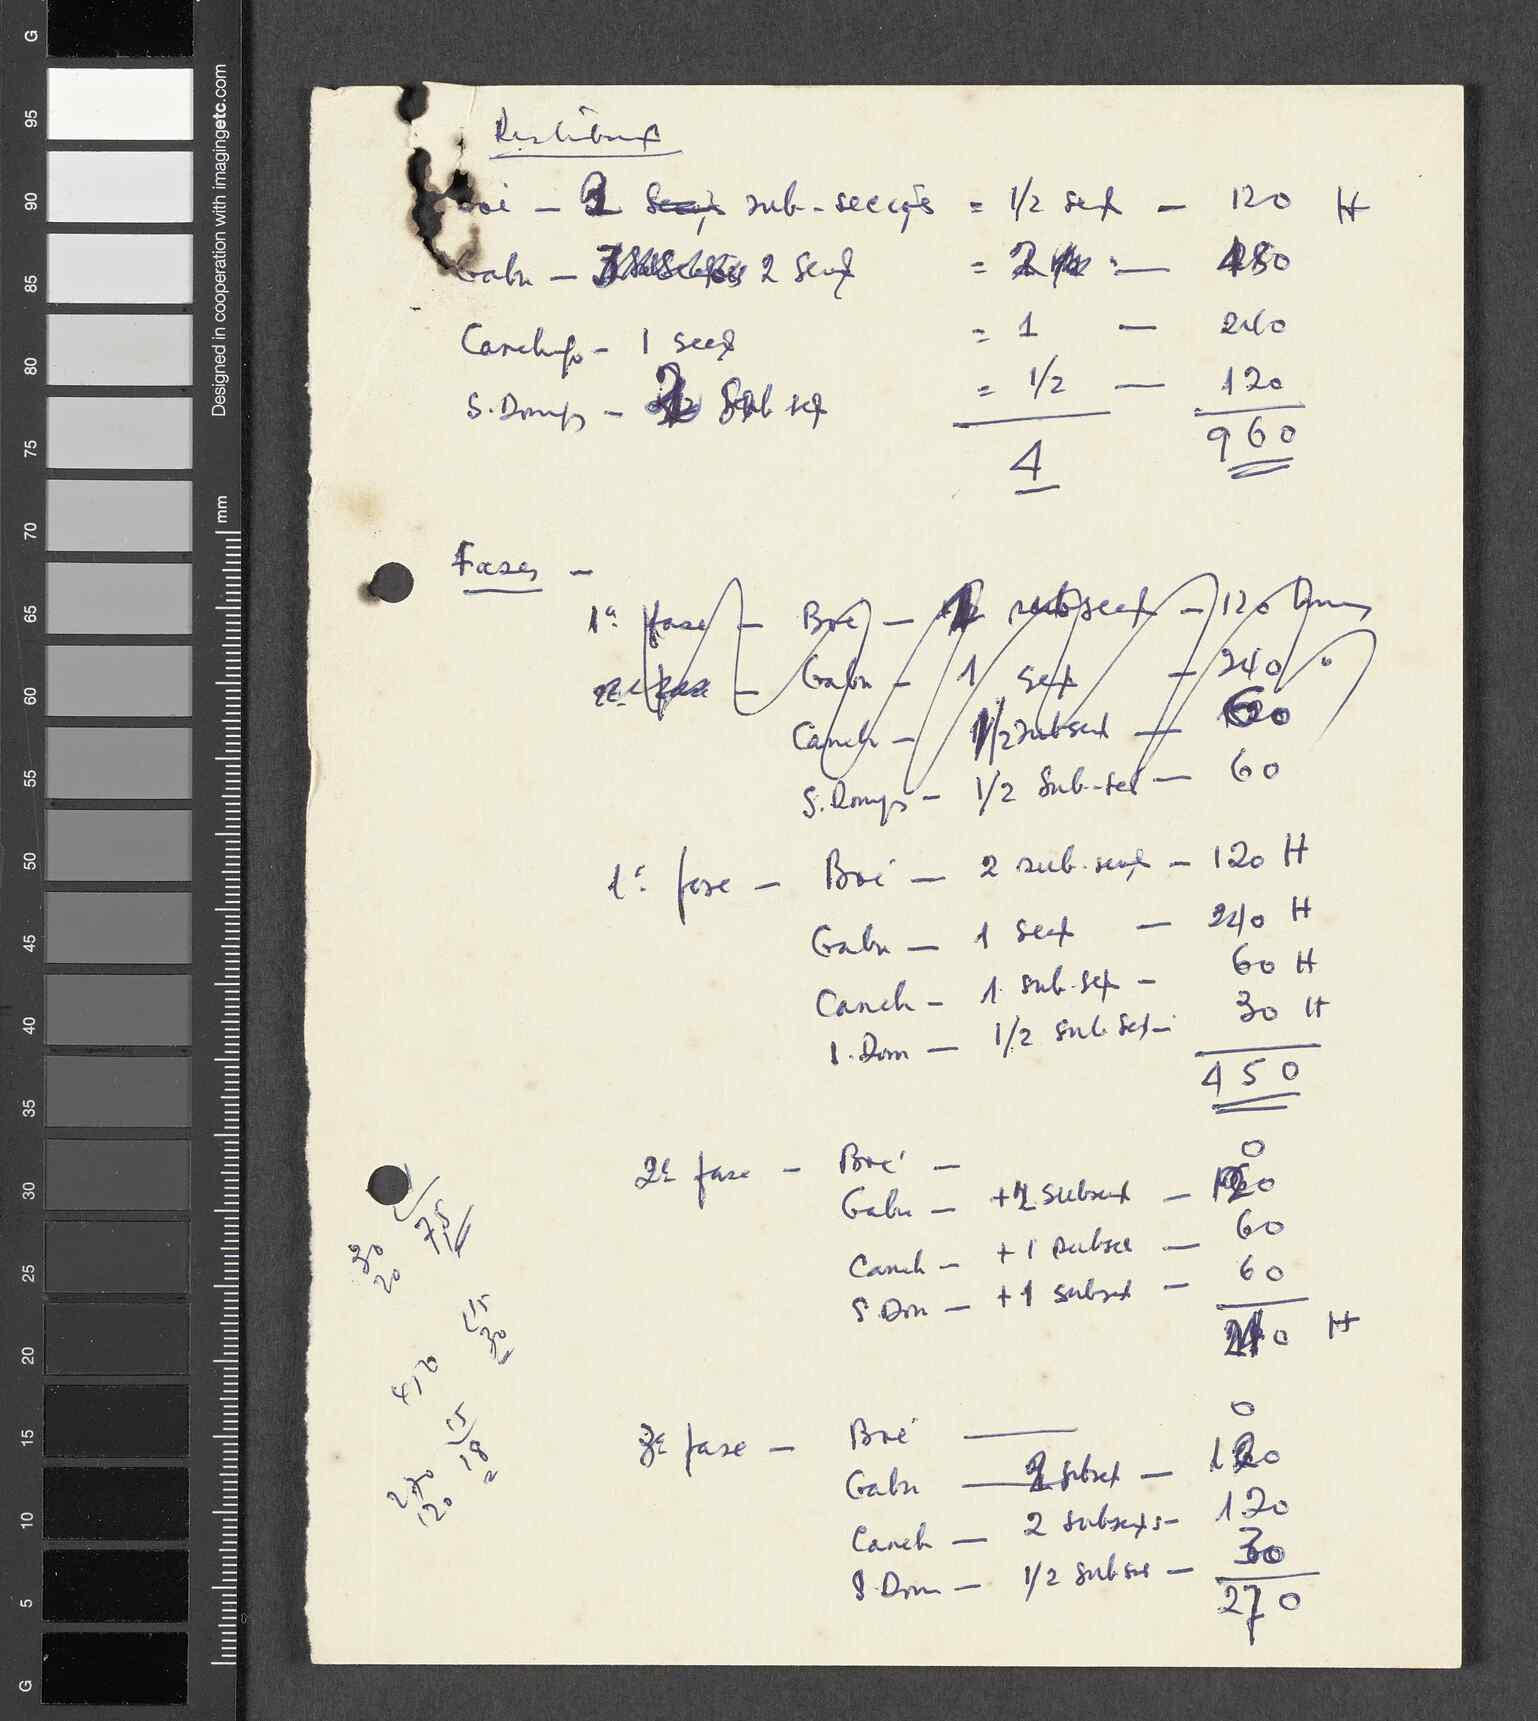 G
95
90
85
80
75
70
65
60
55
50
45
40
35
30
25
20
15
10
5
G
Designed in cooperation with imagingetc.com
mm
Boé – 2 sub-secções = 1/2 secç – 120 H
Gabu – 2 secç = 2 – 480
Canchungo – 1 secç = 1 – 240
S. Domgs – 2 Sub secç = 1/2 – 120
4 960
Fases –
1ª fase – Boé – subsecç – 120 Homens
2ª fase – Gabu – 1 secç – 240 "
Canch – 1/2 subsecç – 60
S. Domgs – 1/2 Sub-sec – 60
1ª fase – Boé – 2 sub-secç – 120 H
Gabu – 1 secç – 240 H
Canch – 1 sub-secç – 60 H
S. Dom – 1/2 sub secç – 30 H
450
2ª fase – Boé – 0
Gabu – +2 subsecç – 120
Canch – +1 subsec – 60
S. Dom – +1 subsecç – 60
240 H
3ª fase – Boé — 0
Gabu — 2 subsecç – 120
Canch — 2 subsecçs – 120
S. Dom – 1/2 subsec – 30
270
75
30
20
15
30
450
15
18
270
120